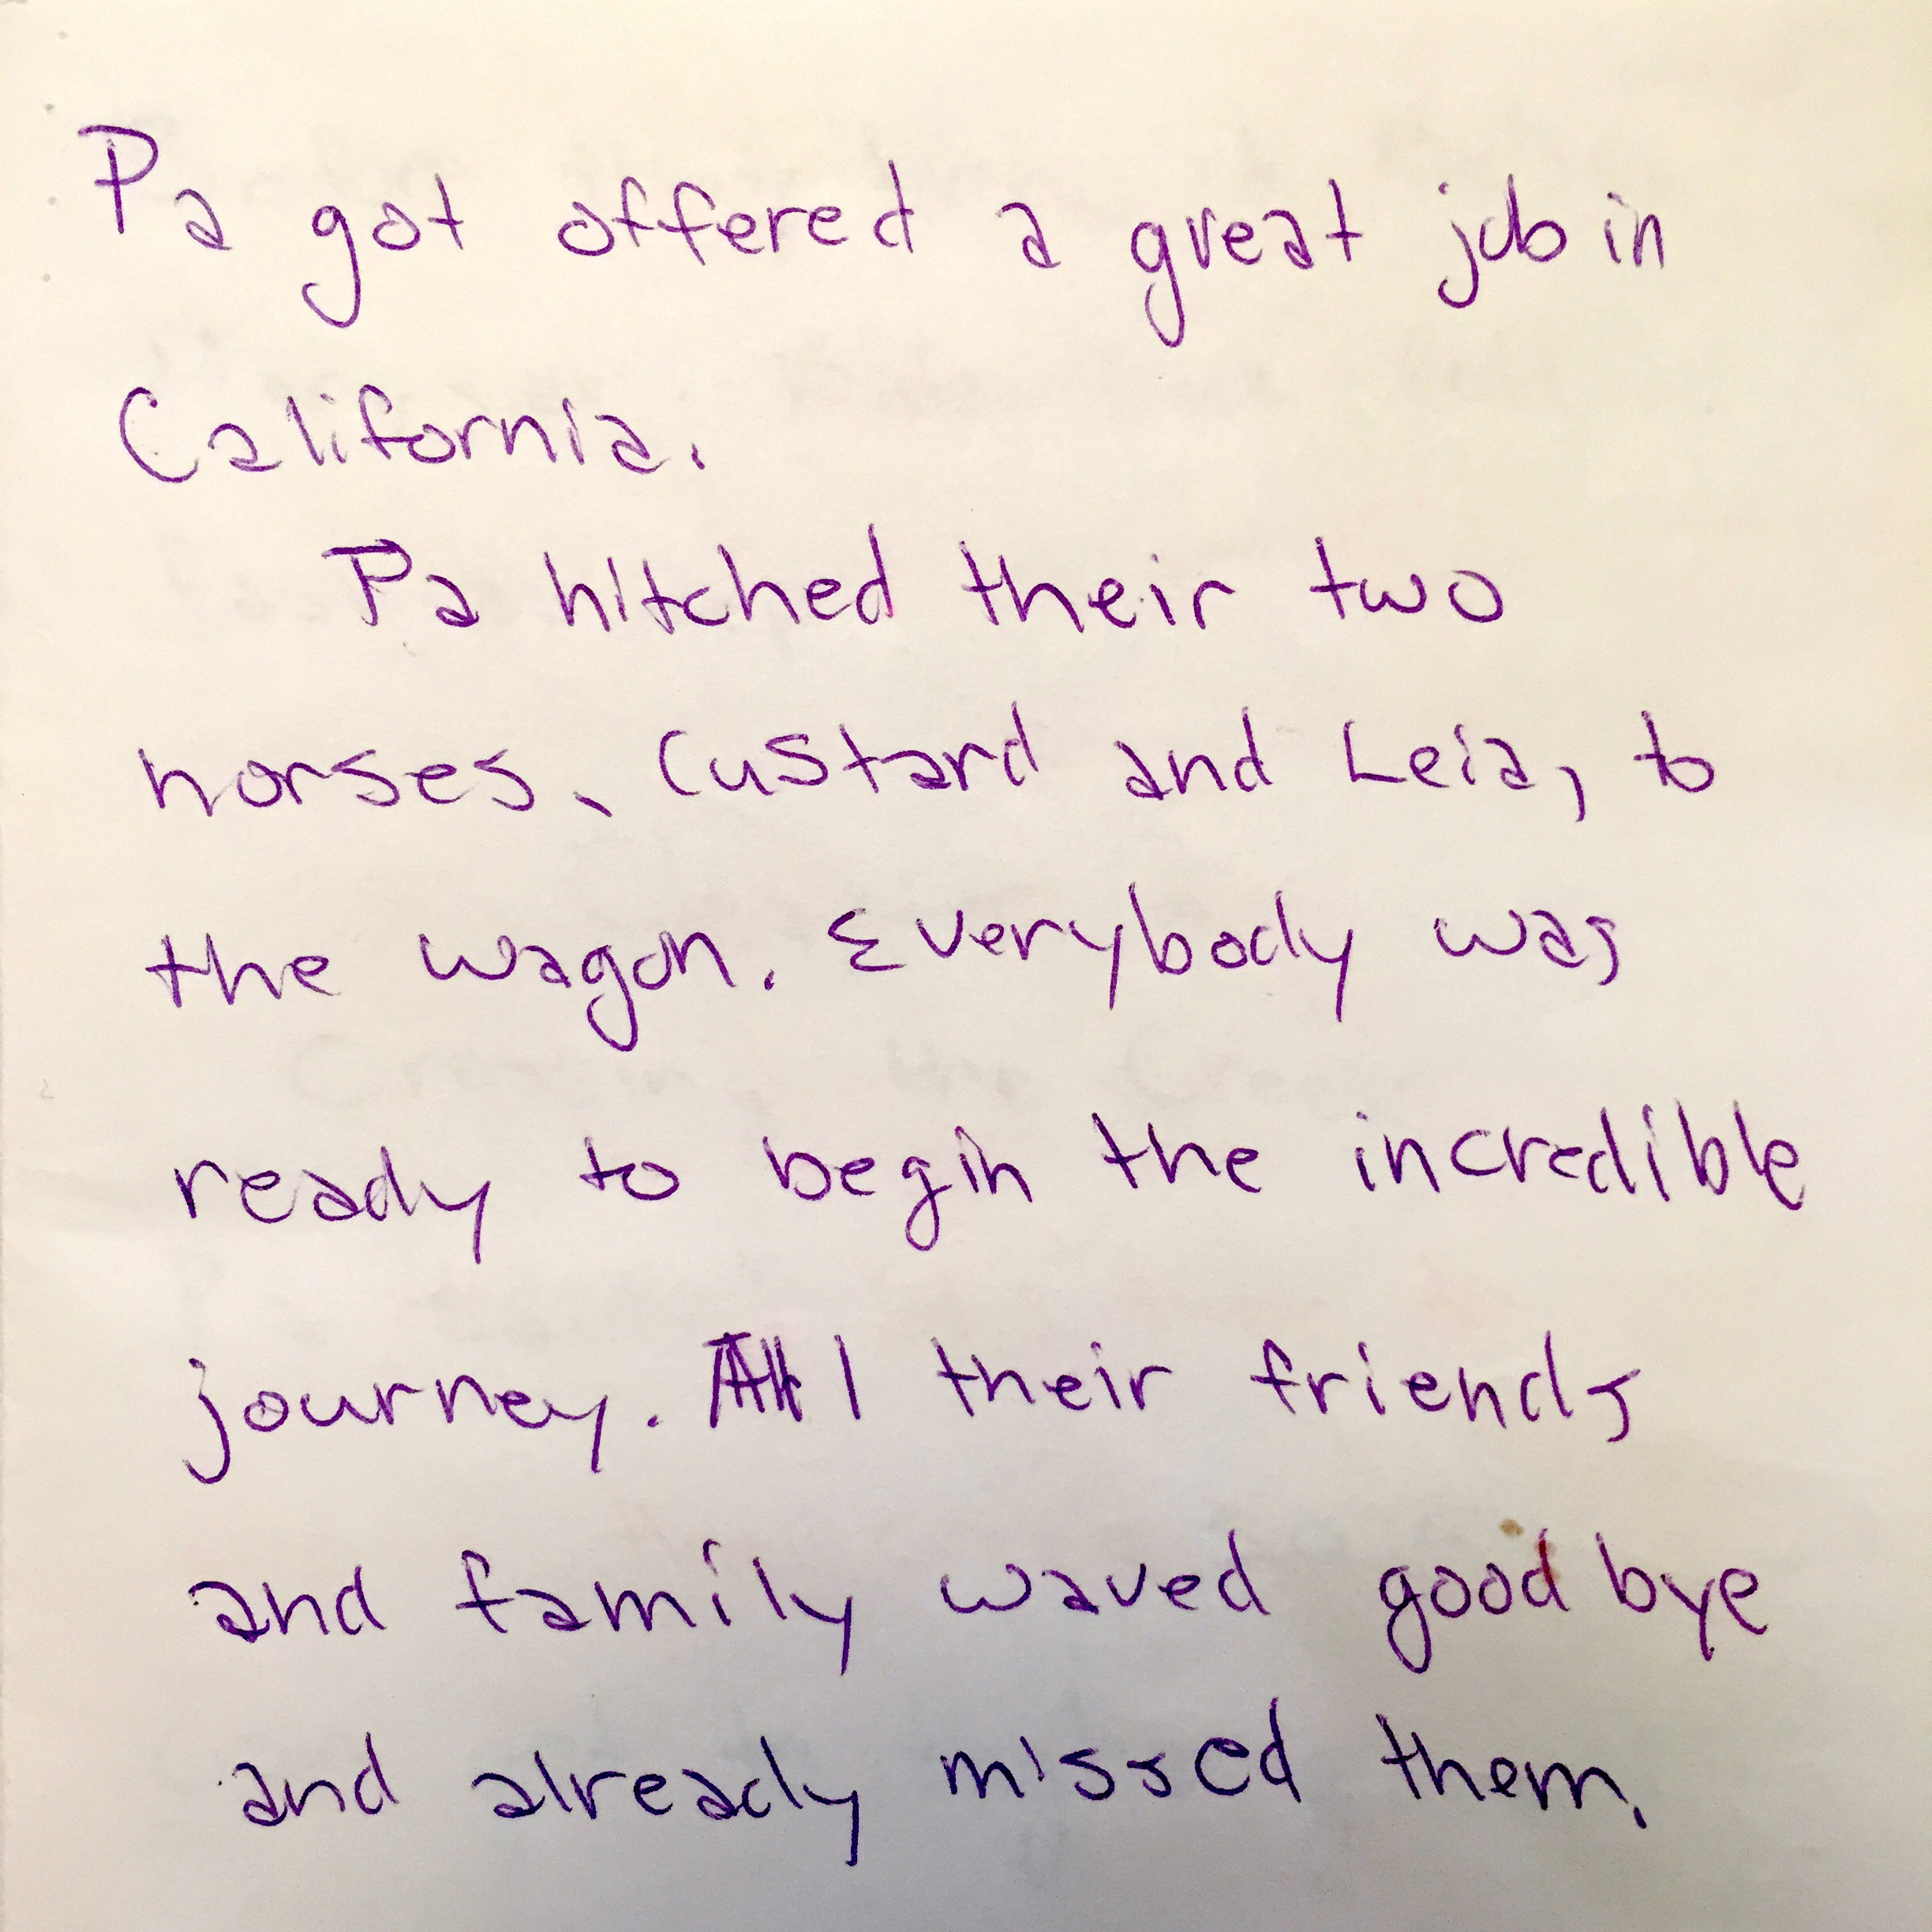 Pa got offered a great job in
California.
Pa hitched their two
horses, Custard and Leia, to
the wagon. Everybody was
ready to begin the incredible
journey. All their friends
and family waved good bye
and already missed them.